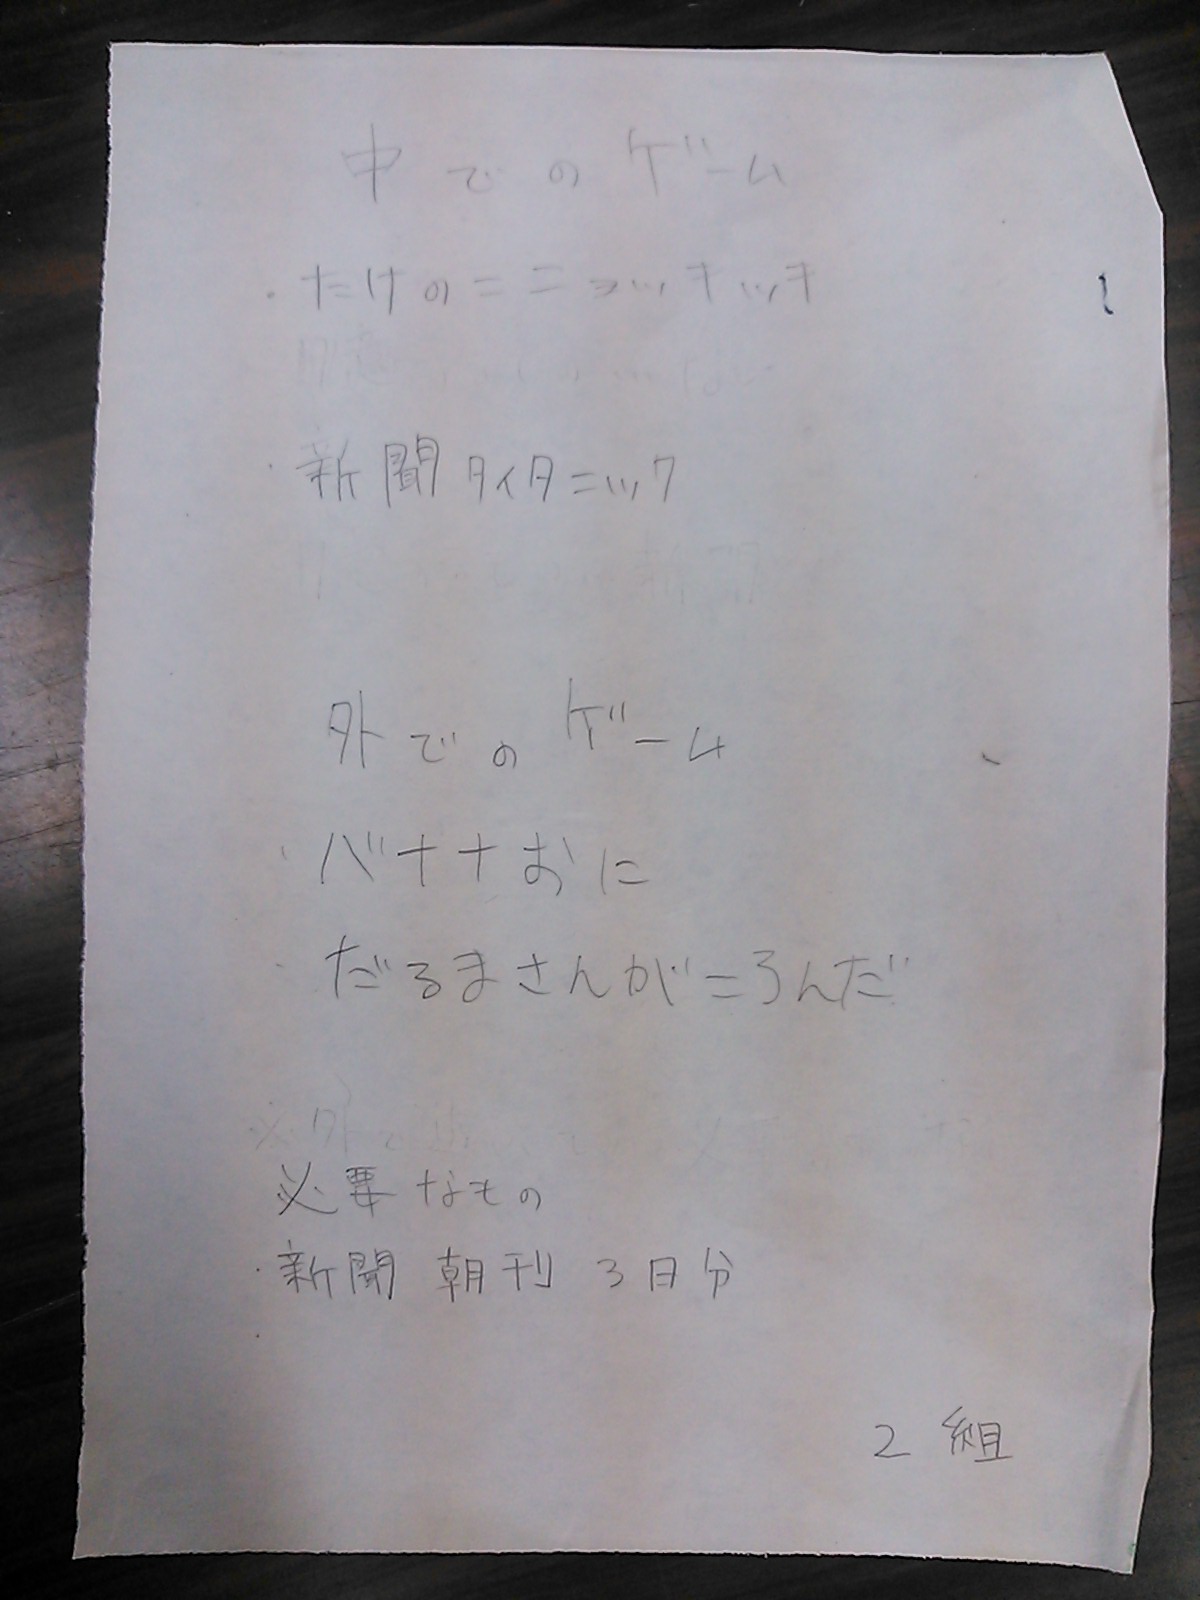 中でのゲーム
・たけのこニョッキッキ
・新聞タイタニック
外でのゲーム
・バナナおに
・だるまさんがころんだ
必要なもの
・新聞 朝刊 3日分
・
2組